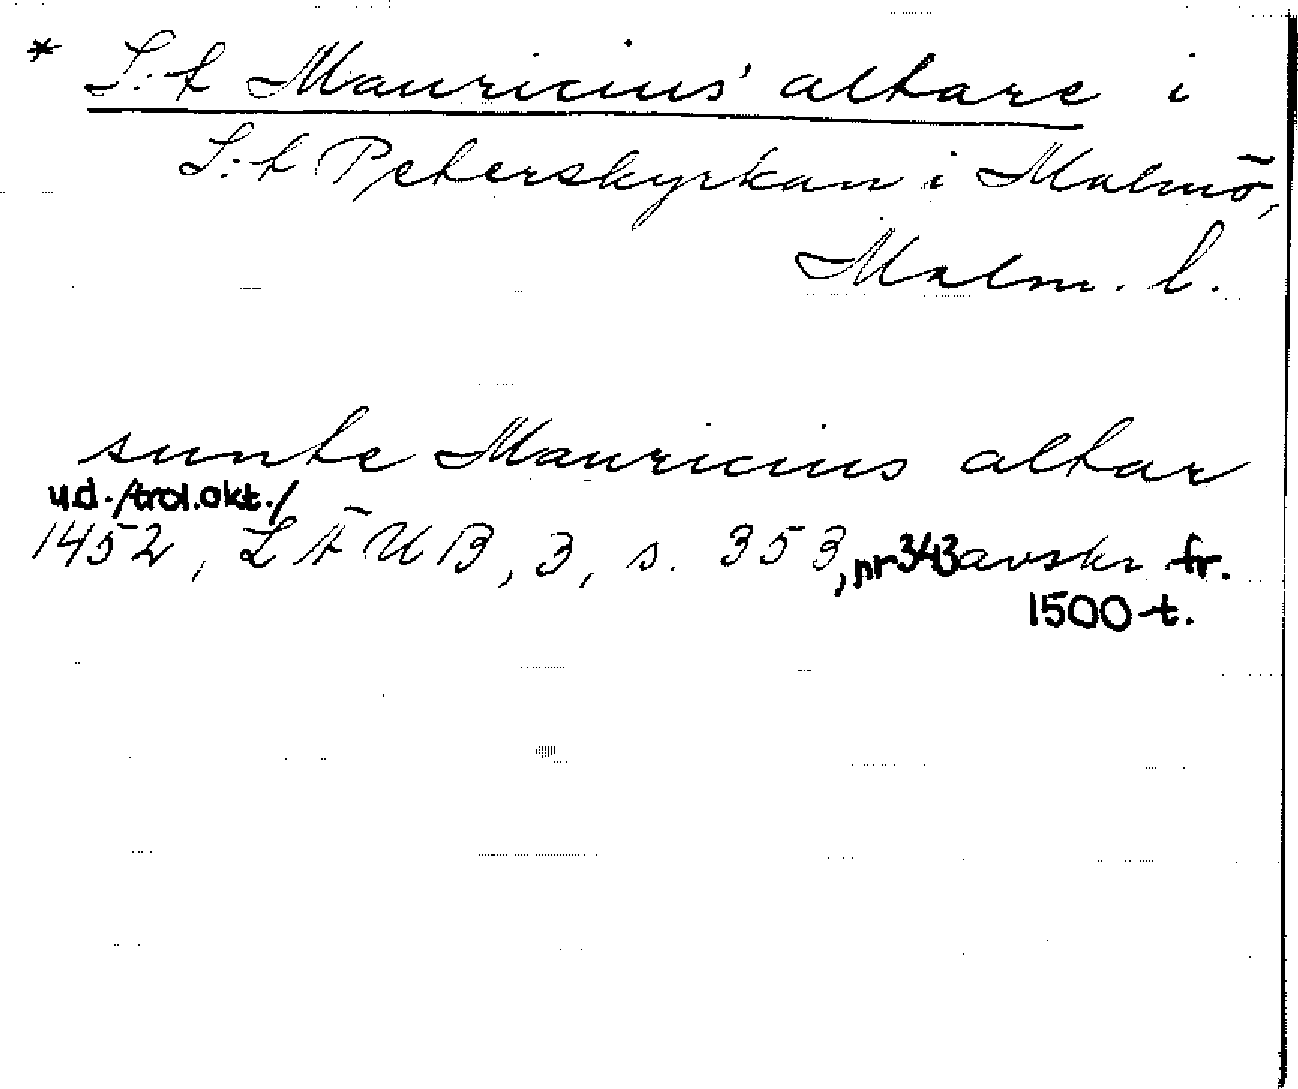 * S:t Mauricius' altare i
S:t Peterskyrkan i Malmö,
Malm. l.
sunte Mauricius altar
u.d./trol.okt./
1452, LÄUB, 3, s. 353, nr 343 avskr fr.
1500-t.